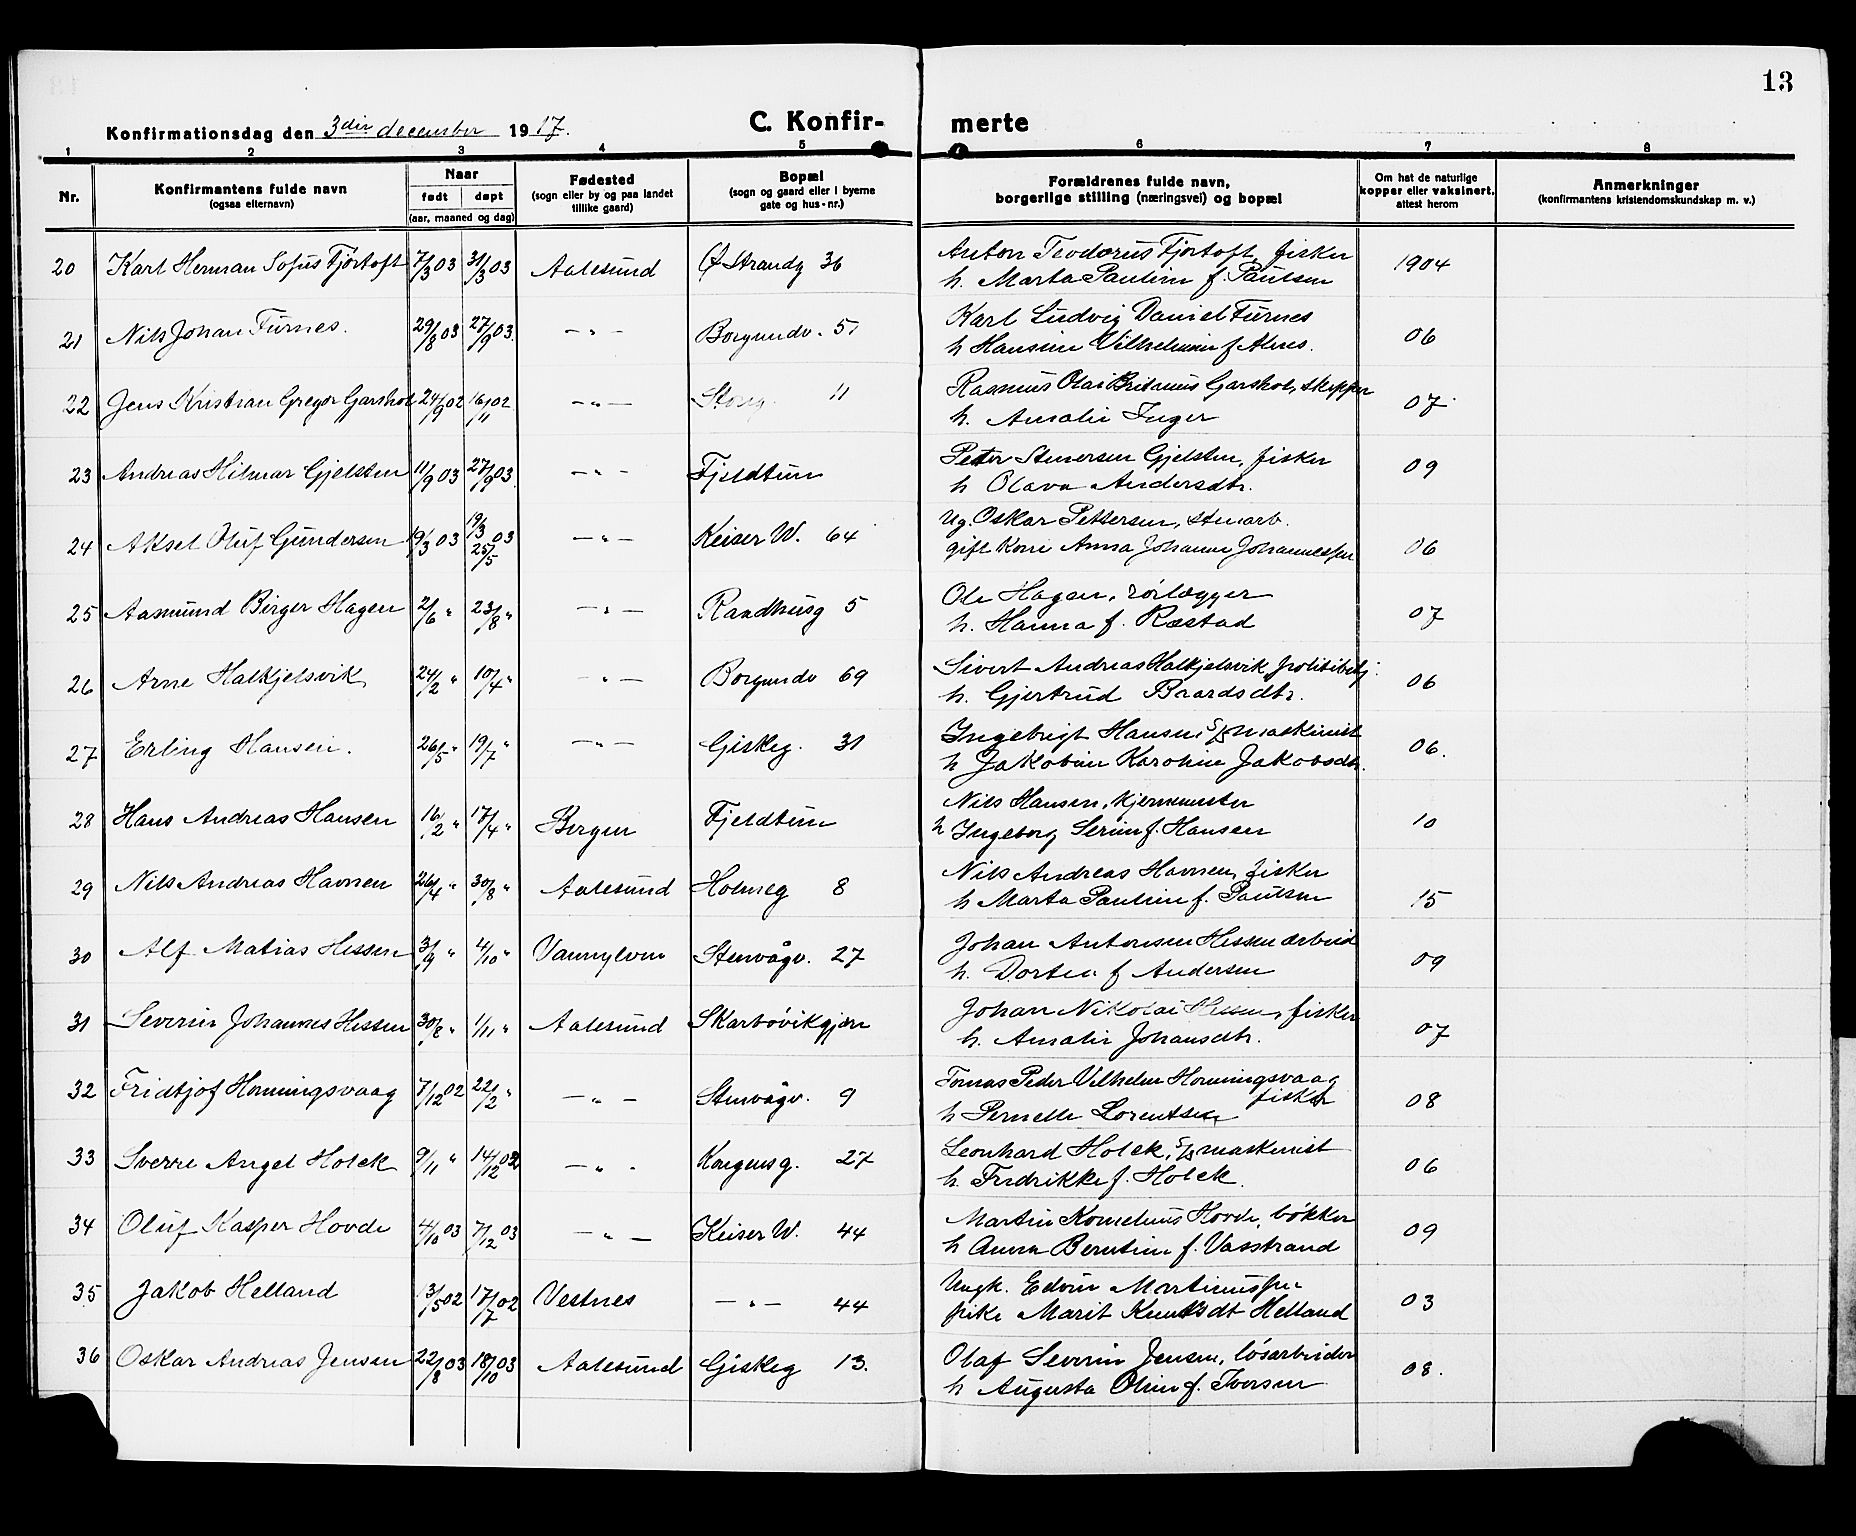 13
Konfirmationsdag den 3die december 1917.
C. Konfir- merte
1 2 3 4 5 6 7 8
Nr.
Konfirmantens fulde navn
(ogsaa elternavn)
Naar
født døpt
(aar, maaned og dag)
Fødested
(sogn eller by og paa landet
tillike gaard)
Bopæl
(sogn og gaard eller i byerne
gate og hus-nr.)
Forældrenes fulde navn,
borgerlige stilling (næringsvei) og bopæl
Om hat de naturlige
kopper eller vaksinert.
attest herom
Anmerkninger
(konfirmantens kristendomskundskap m. v.)
20 Karl Herman Sofus Fjørtoft 7/3 03 31/3 03 Aalesund Ø Strandg 36 Anton Teodorus Fjørtoft, fisker
h. Marta Pauline f. Paulsen 1904
21 Nils Johan Furnes. 29/8 03 27/9 03. — " — Borgundv. 51 Karl Ludvig Daniel Furnes
h Hansine Vilhelmine f Alnes. 06
22 Jens Kristian Gregor Garshol 24/9 02 16/11 02 — " — Storg. 11 Rasmus Olai Garshol, skipper
h. Amalie Inger 07
23 Andreas Hilmar Gjelsten 11/9 03 27/9 03. — " — Fjeldtun Peter Stenersen Gjelsten, fisker
h Olava Andersdtr. 09
24 Aksel Oluf Gundersen 19/3 03 19/3 25/5 03 — " — Keiser W. 64 Ug. Oskar Pettersen, stenarb.
gift kone Anna Johanne Johannessen 06
25 Aasmund Birger Hagen 2/6 " 23/8 " — " — Raadhusg 5 Ole Hagen, rörlægger
h. Hanna f. Ræstad 07
26 Arne Halkjelsvik 24/2 " 10/4 " — " — Borgundv 69 Sivert Andreas Halkjelsvik politibetj.
h. Gjertrud Baardsdtr. 06
27 Erling Hansen. 26/5 " 19/7 " — " — Giskeg. 31 Ingebrigt Hansen, S/S maskinist
h Jakobine Karoline Jakobsdtr. 06.
28 Hans Andreas Hansen 16/2 " 17/4 " Bergen Fjeldtun Nils Hansen,
h Ingeborg Serine f. Hansen 10
29 Nils Andreas Havnen 26/4 " 30/8 " Aalesund Holmeg 8 Nils Andreas Havnen, fisker
h Marta Pauline f. Paulsen 15
30 Alf Matias Hessen 3/9 " 4/10 " Vannylven Stenvågv. 27 Johan Antonsen Hessen arbeid
h. Dortea f Andersen 09
31 Severin Johannes Hessen 30/8 " 1/11 " Aalesund Skarbövikgjær Johan Nikolai Hessen, fisker
h. Amalie Johansdtr. 07
32 Fridtjof Honningsvaag 7/12 02 22/2 " — " — Stenvågv. 9 Tomas Peder Vilhelm Honningsvaag
fisker
h Pernelle Lorentsen 08
33 Sverre Angel Holck 9/11 " 14/12 02 — " - Kongensg. 27 Leonhard Holck, S/S maskinist
h. Fredrikke f. Holck. 06
34 Oluf Kasper Hovde 4/10 03 7/12 03 — " — Keiser W. 44 Martin Kornelius Hovde, bøkker
h Anna Berntine f. Vasstrand 09
35 Jakob Helland 13/5 02 17/7 02 Vestnes — " — 44 Ungk. Edvin Martinussen
pike Marit Knutsdt Helland 03
36 Oskar Andreas Jensen 22/8 03 18/10 03 Aalesund Giskeg 13. Olaf Severin Jensen, løsarbeider
h Augusta Oline f. Iversen 08.